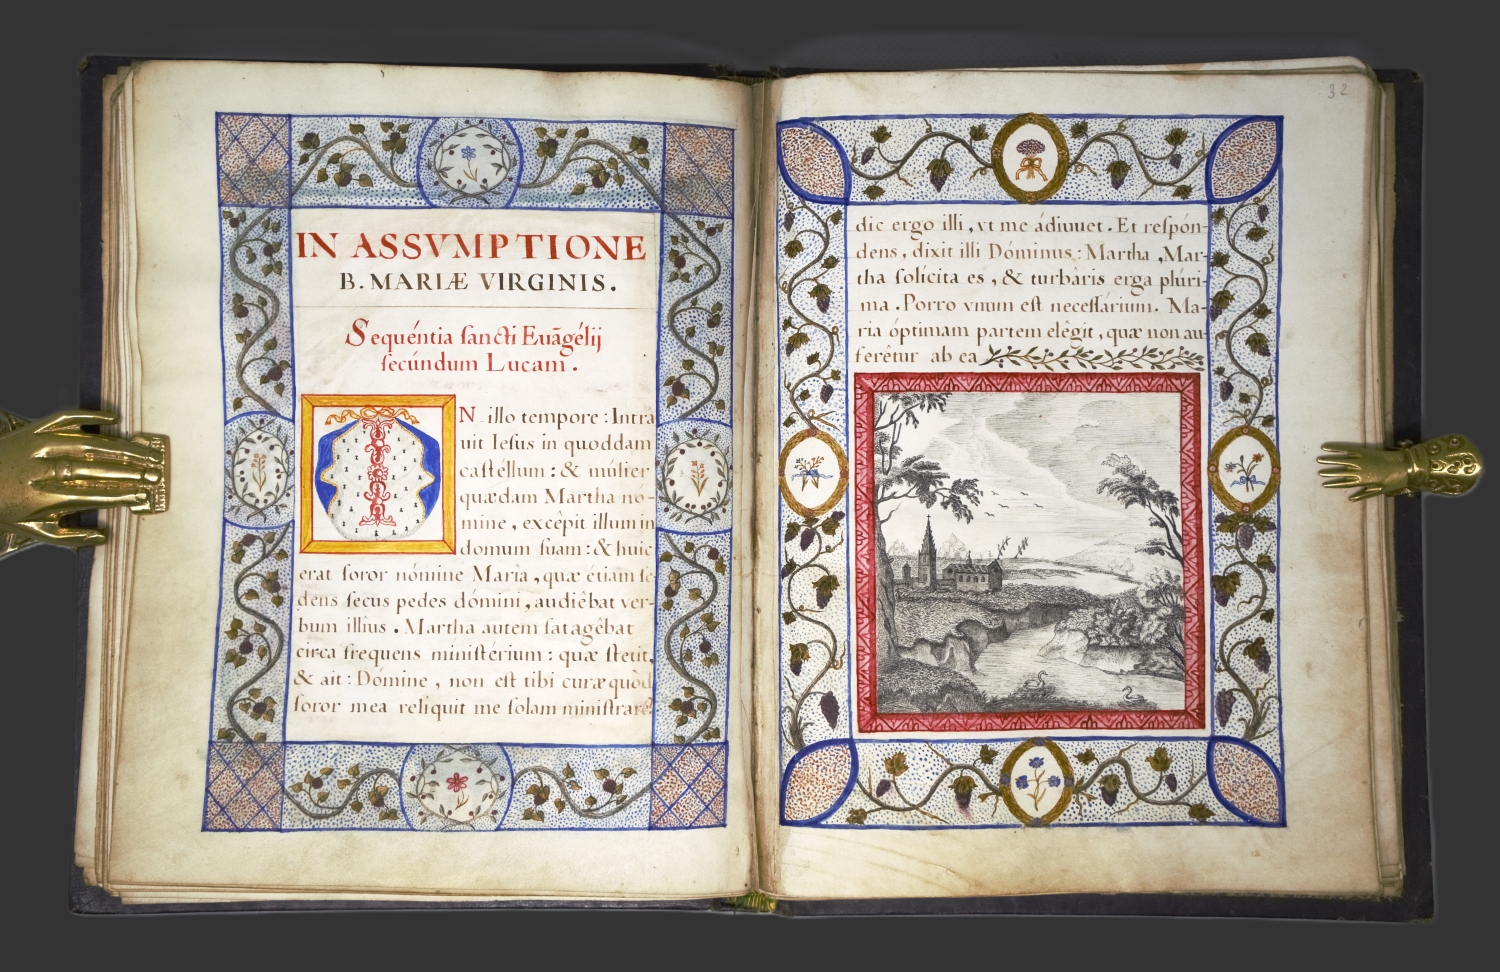 IN ASSVMPTIONE
B. MARIÆ VIRGINIS.
Sequéntia ſancti Euãgélij
ſecúndum Lucam.
IN illo tempore : Intra
uit Ieſus in quoddam
caſtéllum : & múlier
quædam Martha nó-
mine, excêpit illum in
domum ſuam : & huic
erat ſoror nómine María, quæ étiam ſe-
dens ſecus pedes dómini, audiêbat ver-
bum illíus. Martha autem ſatagêbat
circa frequens miniſtérium : quæ ſtetit,
& ait : Dómine, non eſt tibi curæ quòd
ſoror mea relíquit me ſolam miniſtrare?
32
dic ergo illi, vt me ádiuuet. Et reſpón-
dens, dixit illi Dóminus : Martha, Mar-
tha ſolícita es, & turbàris erga plúri-
ma. Porro vnum eſt neceſſárium. Ma-
ria óptimam partem elêgit, quæ non au-
ferêtur ab ea